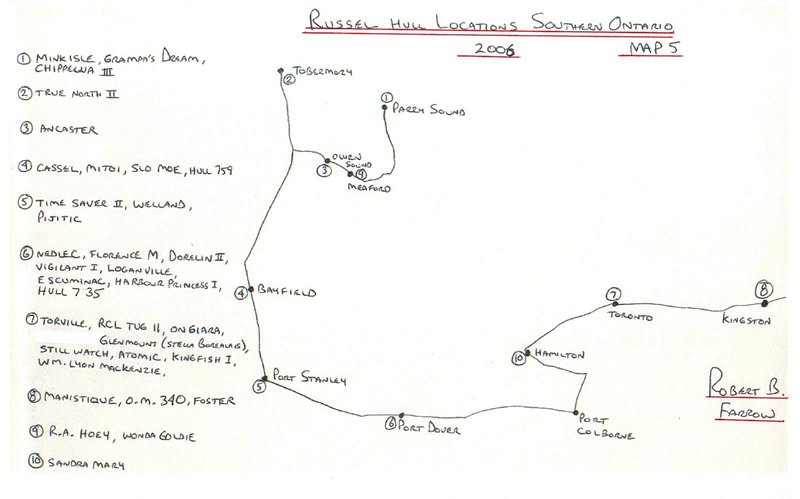 RUSSEL HULL LOCATIONS SOUTHERN ONTARIO
2006 MAP 5
① MINK ISLE, GRAMPA'S DREAM,
CHIPPEWA III
② TRUE NORTH II
③ ANCASTER
④ CASSEL, MITOI, SLO MOE, HULL 759
⑤ TIME SAVER II, WELLAND,
PIJITIC
⑥ NEDLEC, FLORENCE M, DORELIN II,
VIGILANT I, LOGANVILLE,
ESCUMINAC, HARBOUR PRINCESS I,
HULL 735
⑦ TORVILLE, RCL TUG 11, ONGIARA,
GLENMOUNT (STELLA BOREALAIS),
STILL WATCH, ATOMIC, KINGFISH I,
WM. LYON MACKENZIE,
⑧ MANISTIQUE, O.M. 340, FOSTER
⑨ R.A. HOEY, WONDA GOLDIE
⑩ SANDRA MARY
② TOBERMORY
① PARRY SOUND
③ OWEN
SOUND
⑨ MEAFORD
④ BAYFIELD
⑤ PORT STANLEY
⑥ PORT DOVER
PORT
COLBORNE
⑩ HAMILTON
⑦ TORONTO
⑧ KINGSTON
ROBERT B.
FARROW